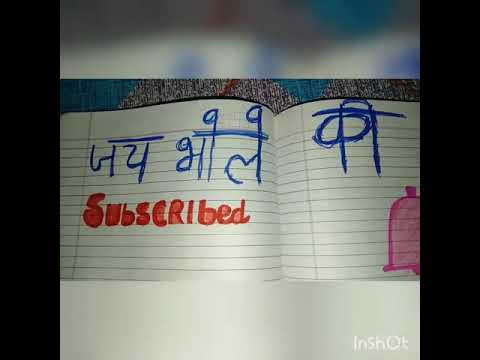 जय भोले की
SUBSCRIbed
InShOt